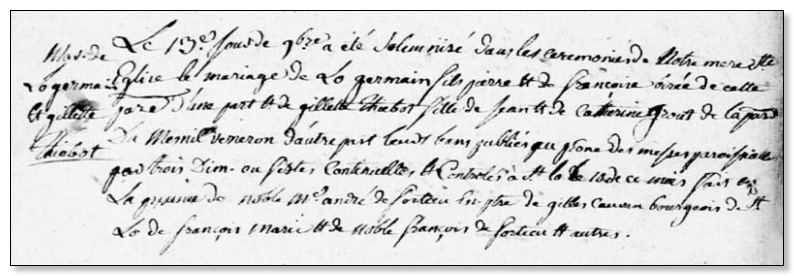 Mar. de
Lo germain
Et gillette
Thiebot
Le 13e Jour de 9bre a été Solemnizé dans les ceremonies de Notre mere Ste
Eglise le mariage de Lo germain fils pierre et de françoise de cette
paroi. d'une part et de gillette Thiebot fille de Jean et de Catherine grout de la par
Du Mesnil veneron d'autre part leurs bans publiés au prone des messes paroissialles
par trois Dim. ou festes Continuelles et Controlés a St lo le de ce mois fait en
La presence de noble Mr. andré de Sorteu Ec. de gilles bourgeois de St
Lo de françois Marie et de Noble françois de Sorteu et autres.